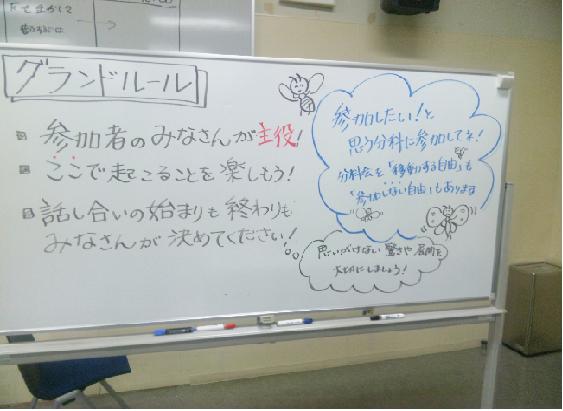 グランドルール
参加者のみなさんが主役!
ここで起こることを楽しもう!
話し合いの始まりも終わりも
みなさんが決めてください!
参加したい!と
思う分科に参加してネ!
分科会を「移動する自由」も
「参加しない自由」もあります
思いがけない驚きや展開を
大切にしましょう!